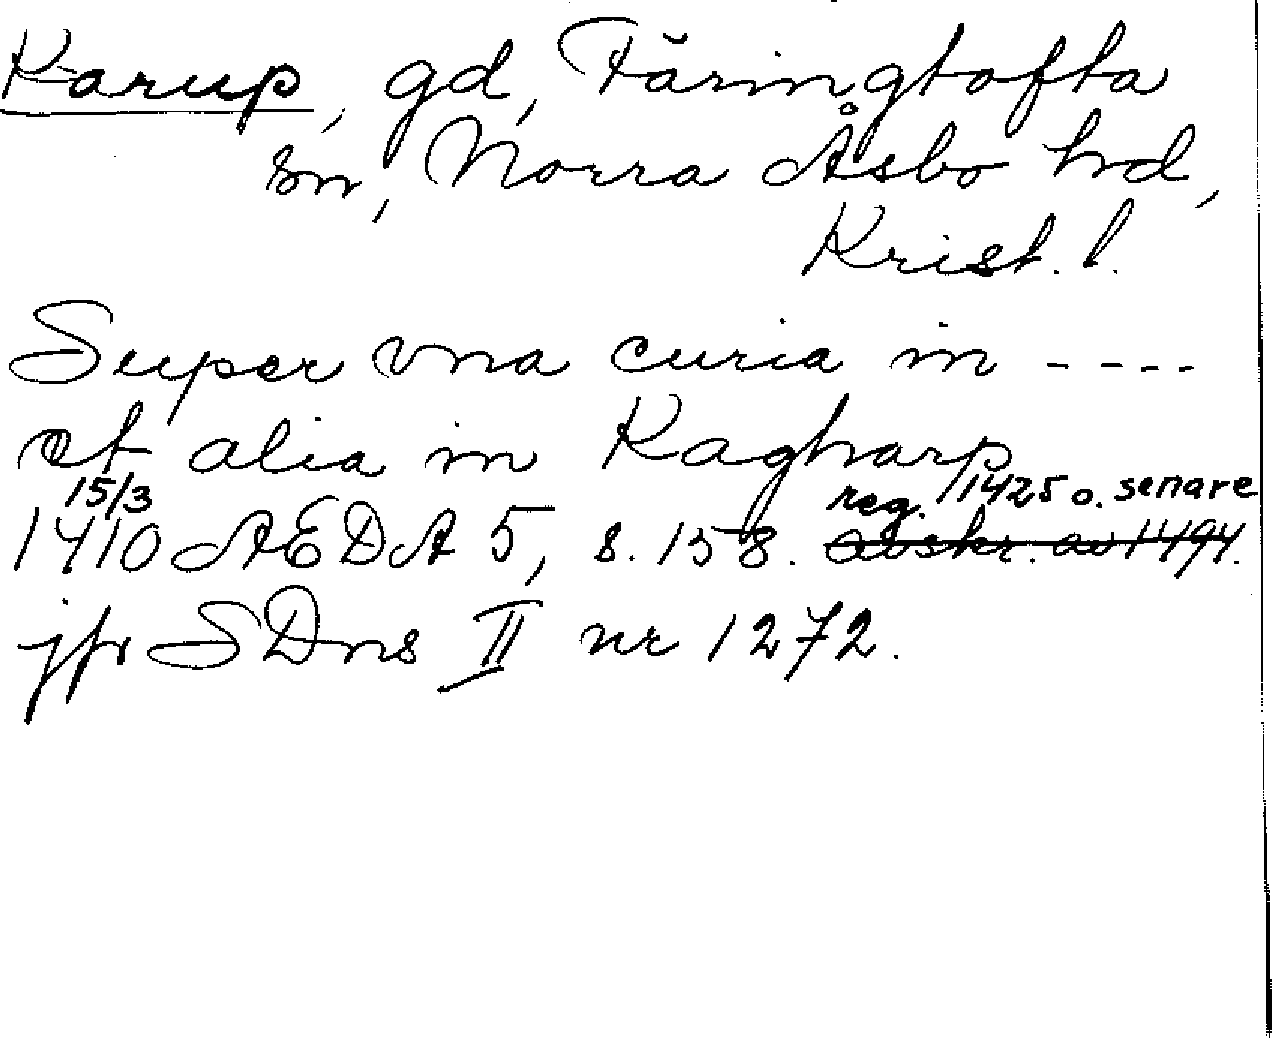 Karup, gd, Färingtofta
sn, Norra Åsbo hd,
Krist. l.
Super vna curia in ----
et alia in Kagharp
15/3 reg. 1425 o. senare
1410 AEDA 5, s. 158. avskr. av 1494.
jfr SDns II nr 1272.